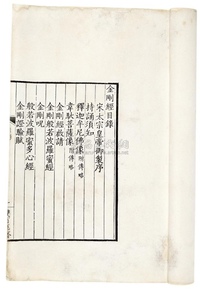 金剛經目錄
宋太宗皇帝御製序
持誦須知
釋迦牟尼佛像附傳略
韋馱菩薩像附傳略
金剛經啟請
金剛般若波羅蜜經
金剛咒
般若波羅蜜多心經
金剛證驗賦